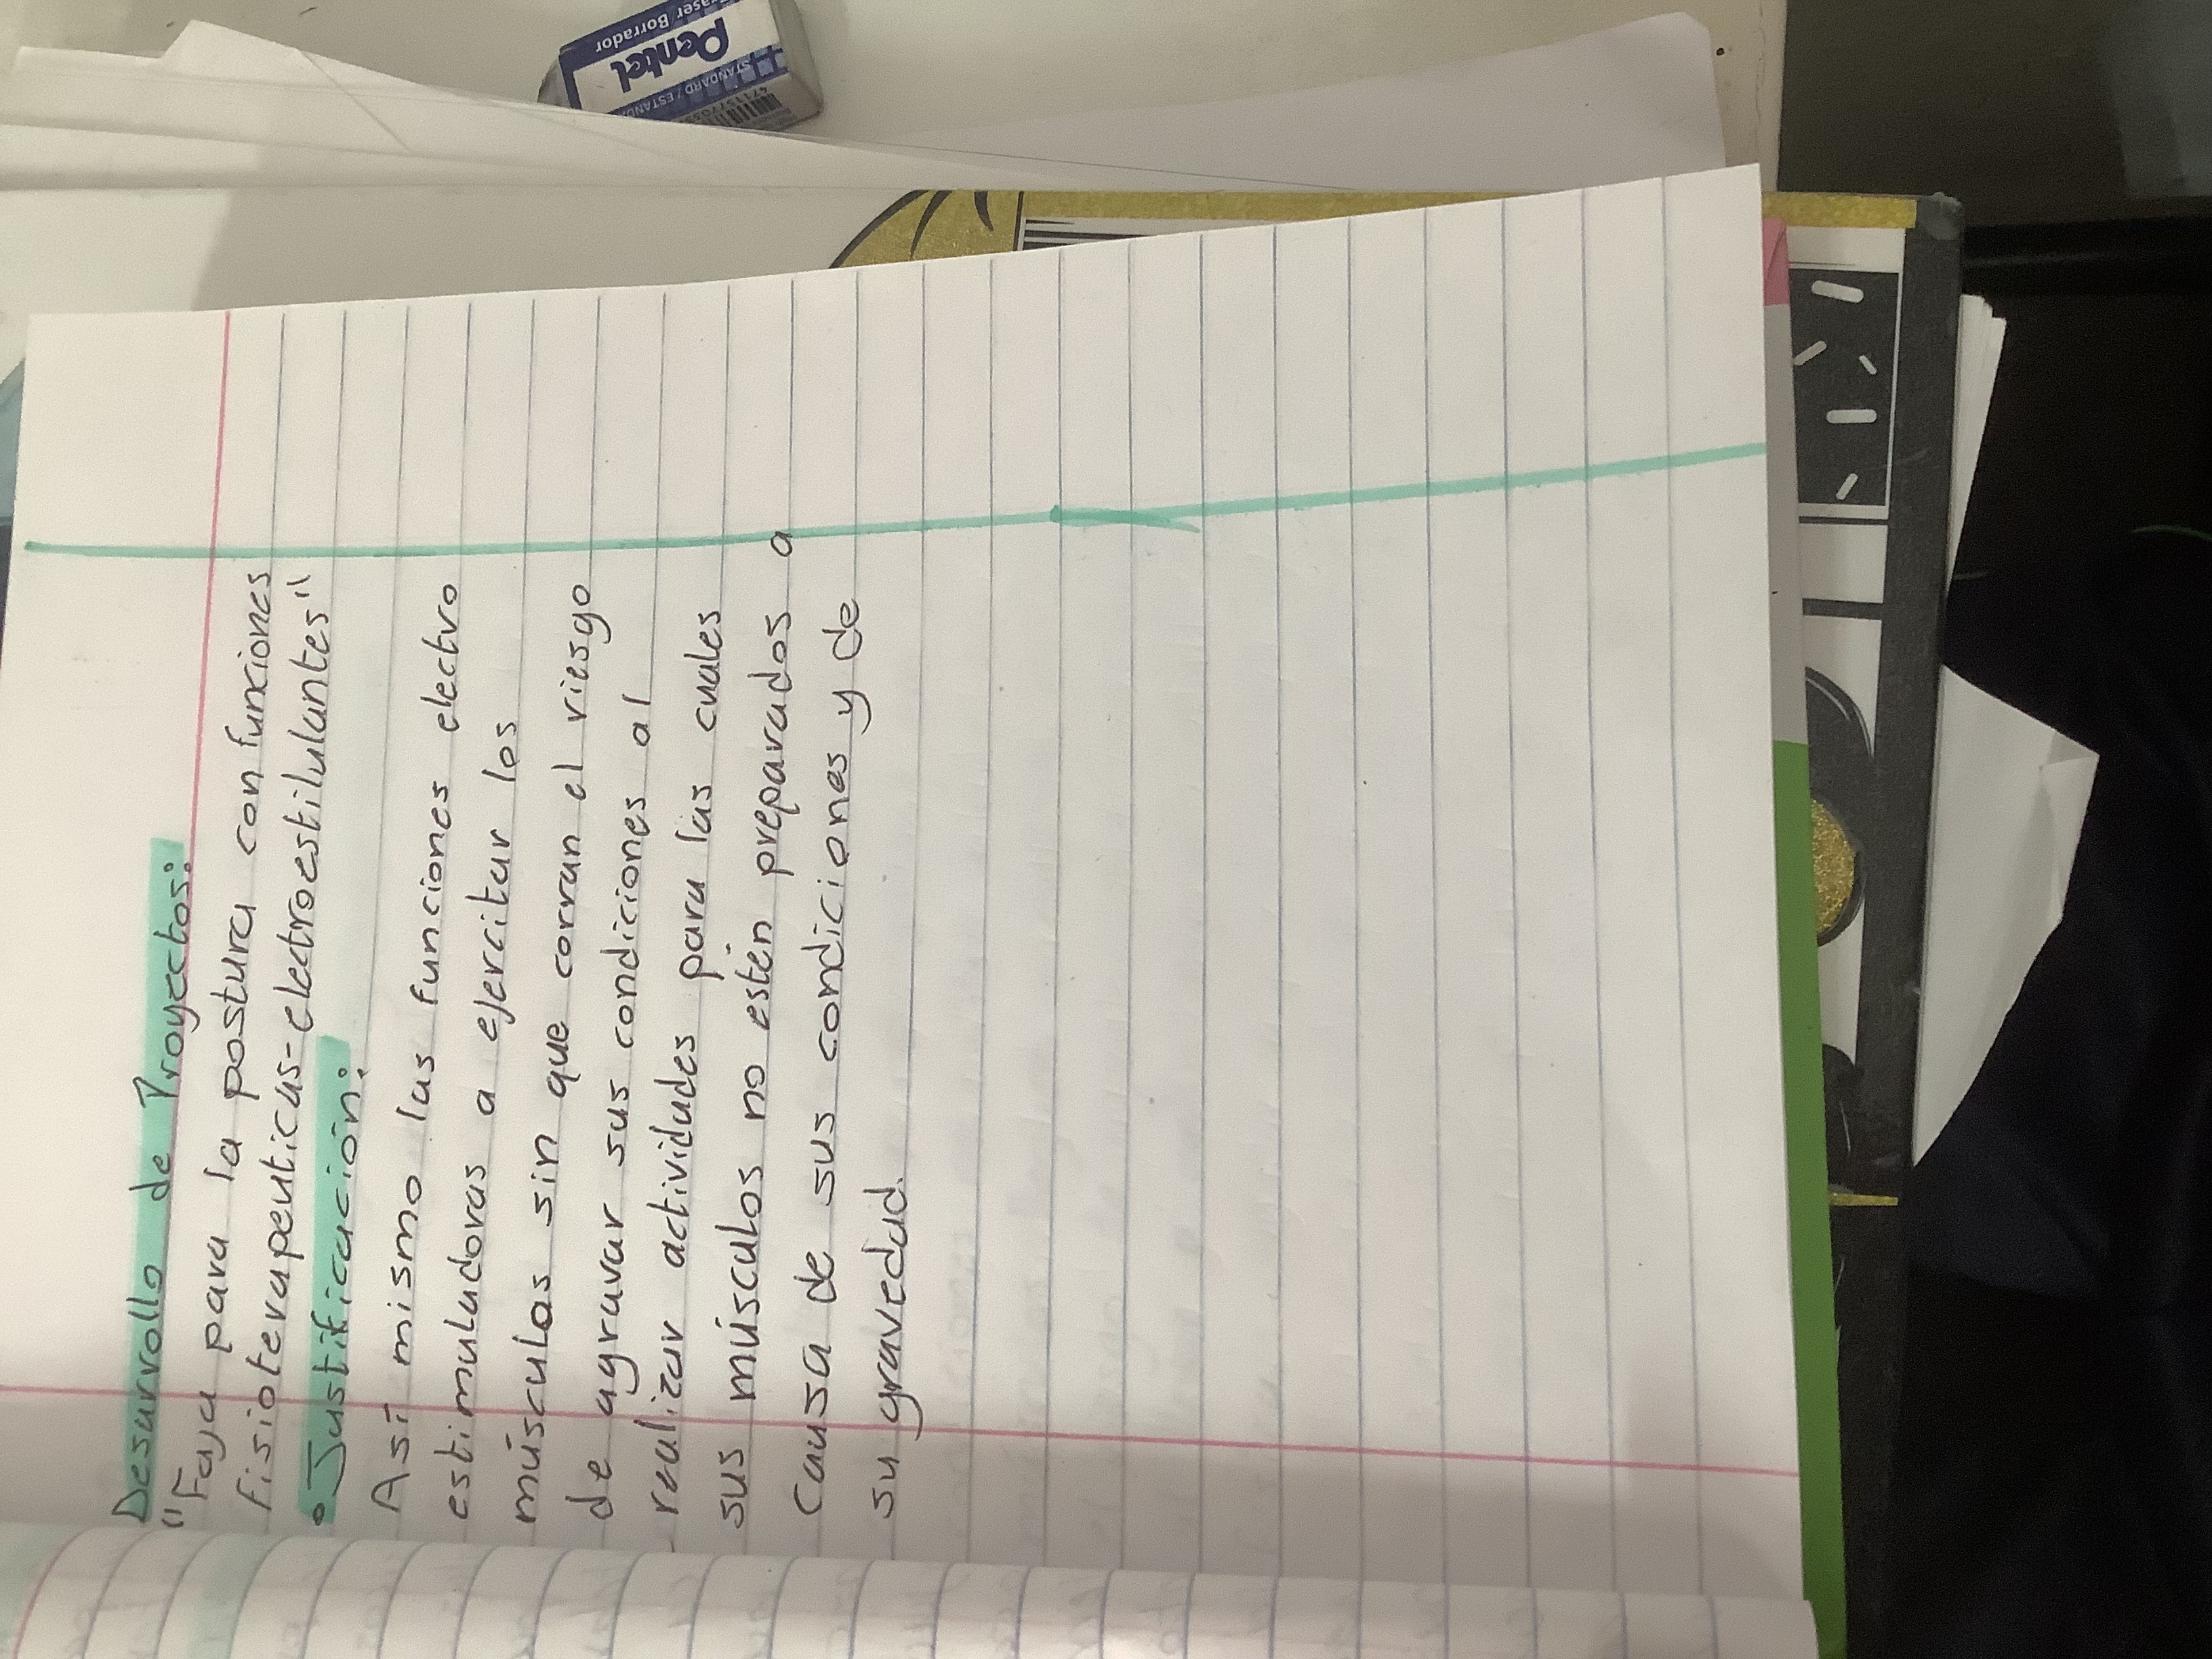 Desarrollo de Proyectos:
"Faja para la postura con funciones
fisioterapeuticas-electroestilulantes"
• Justificación:
Así mismo las funciones electro
estimuladoras a ejercitar los
músculos sin que corran el riesgo
de agravar sus condiciones al
realizar actividades para las cuales
sus músculos no estén preparados a
causa de sus condiciones y de
su gravedad.
Eraser Borrador
Pentel
STANDARD / ESTAND